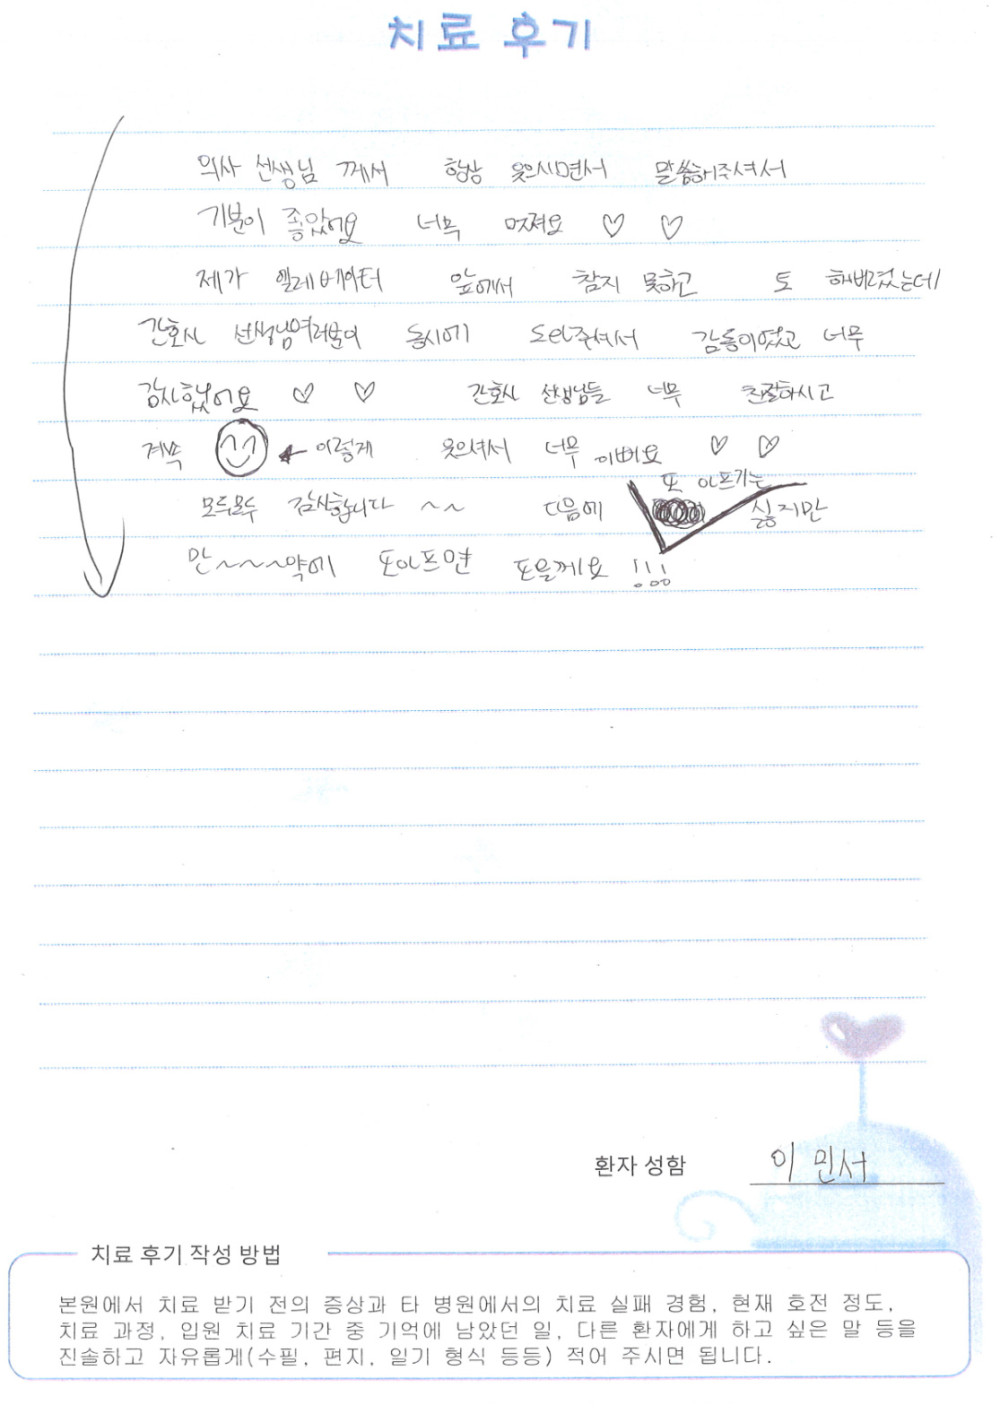 치료 후기
의사 선생님 께서 항상 웃으시면서 말씀해주셔서
기분이 좋았어요 너무 멋져요 ♡ ♡
제가 엘레베이터 앞에서 참지 못하고 토 해버렸는데
간호사 선생님여러분이 동시에 도와주셔서 감동이였고 너무
감사했어요 ♡ ♡ 간호사 선생님들 너무 친절하시고
계속 ← 이렇게 웃으셔서 너무 이뻐요 ♡ ♡
모두모두 감사합니다 ~~ 다음에 또 아프기는 싫지만
만~~~약에 또아프면 또올께요 !!!
환자 성함 이 민서
치료 후기 작성 방법
본원에서 치료 받기 전의 증상과 타 병원에서의 치료 실패 경험, 현재 호전 정도,
치료 과정, 입원 치료 기간 중 기억에 남았던 일, 다른 환자에게 하고 싶은 말 등을
진솔하고 자유롭게(수필, 편지, 일기 형식 등등) 적어 주시면 됩니다.